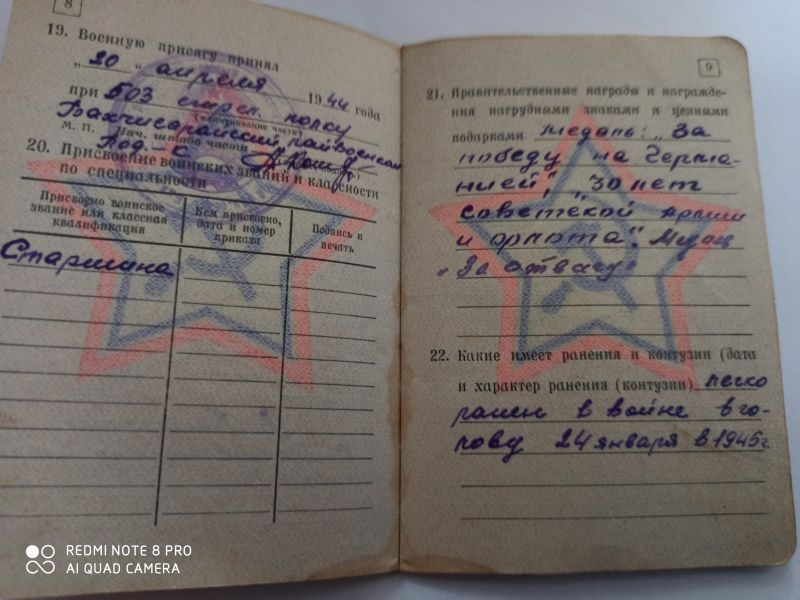 8
19. Военную присягу принял
„20" апреля 1944 года
при 503 стрел. полку
(наименование части)
Бахчисарайский райвоенком
М. П. Нач. штаба части
Под.-к
20. Присвоение воинских званий и классности
по специальности
Присвоено воинское звание или классная квалификация
Кем присвоено, дата и номер приказа
Подпись и печать
Старшина
9
21. Правительственные награды и награжде-
ния нагрудными знаками и ценными
подарками медаль: „За
победу на Герма-
нией", „30 лет
советской армии
и флота". Медаль
„За отвагу"
22. Какие имеет ранения и контузии (дата
и характер ранения (контузии) легко
ранен в войне в го-
лову 24 января в 1945 г.
REDMI NOTE 8 PRO
AI QUAD CAMERA